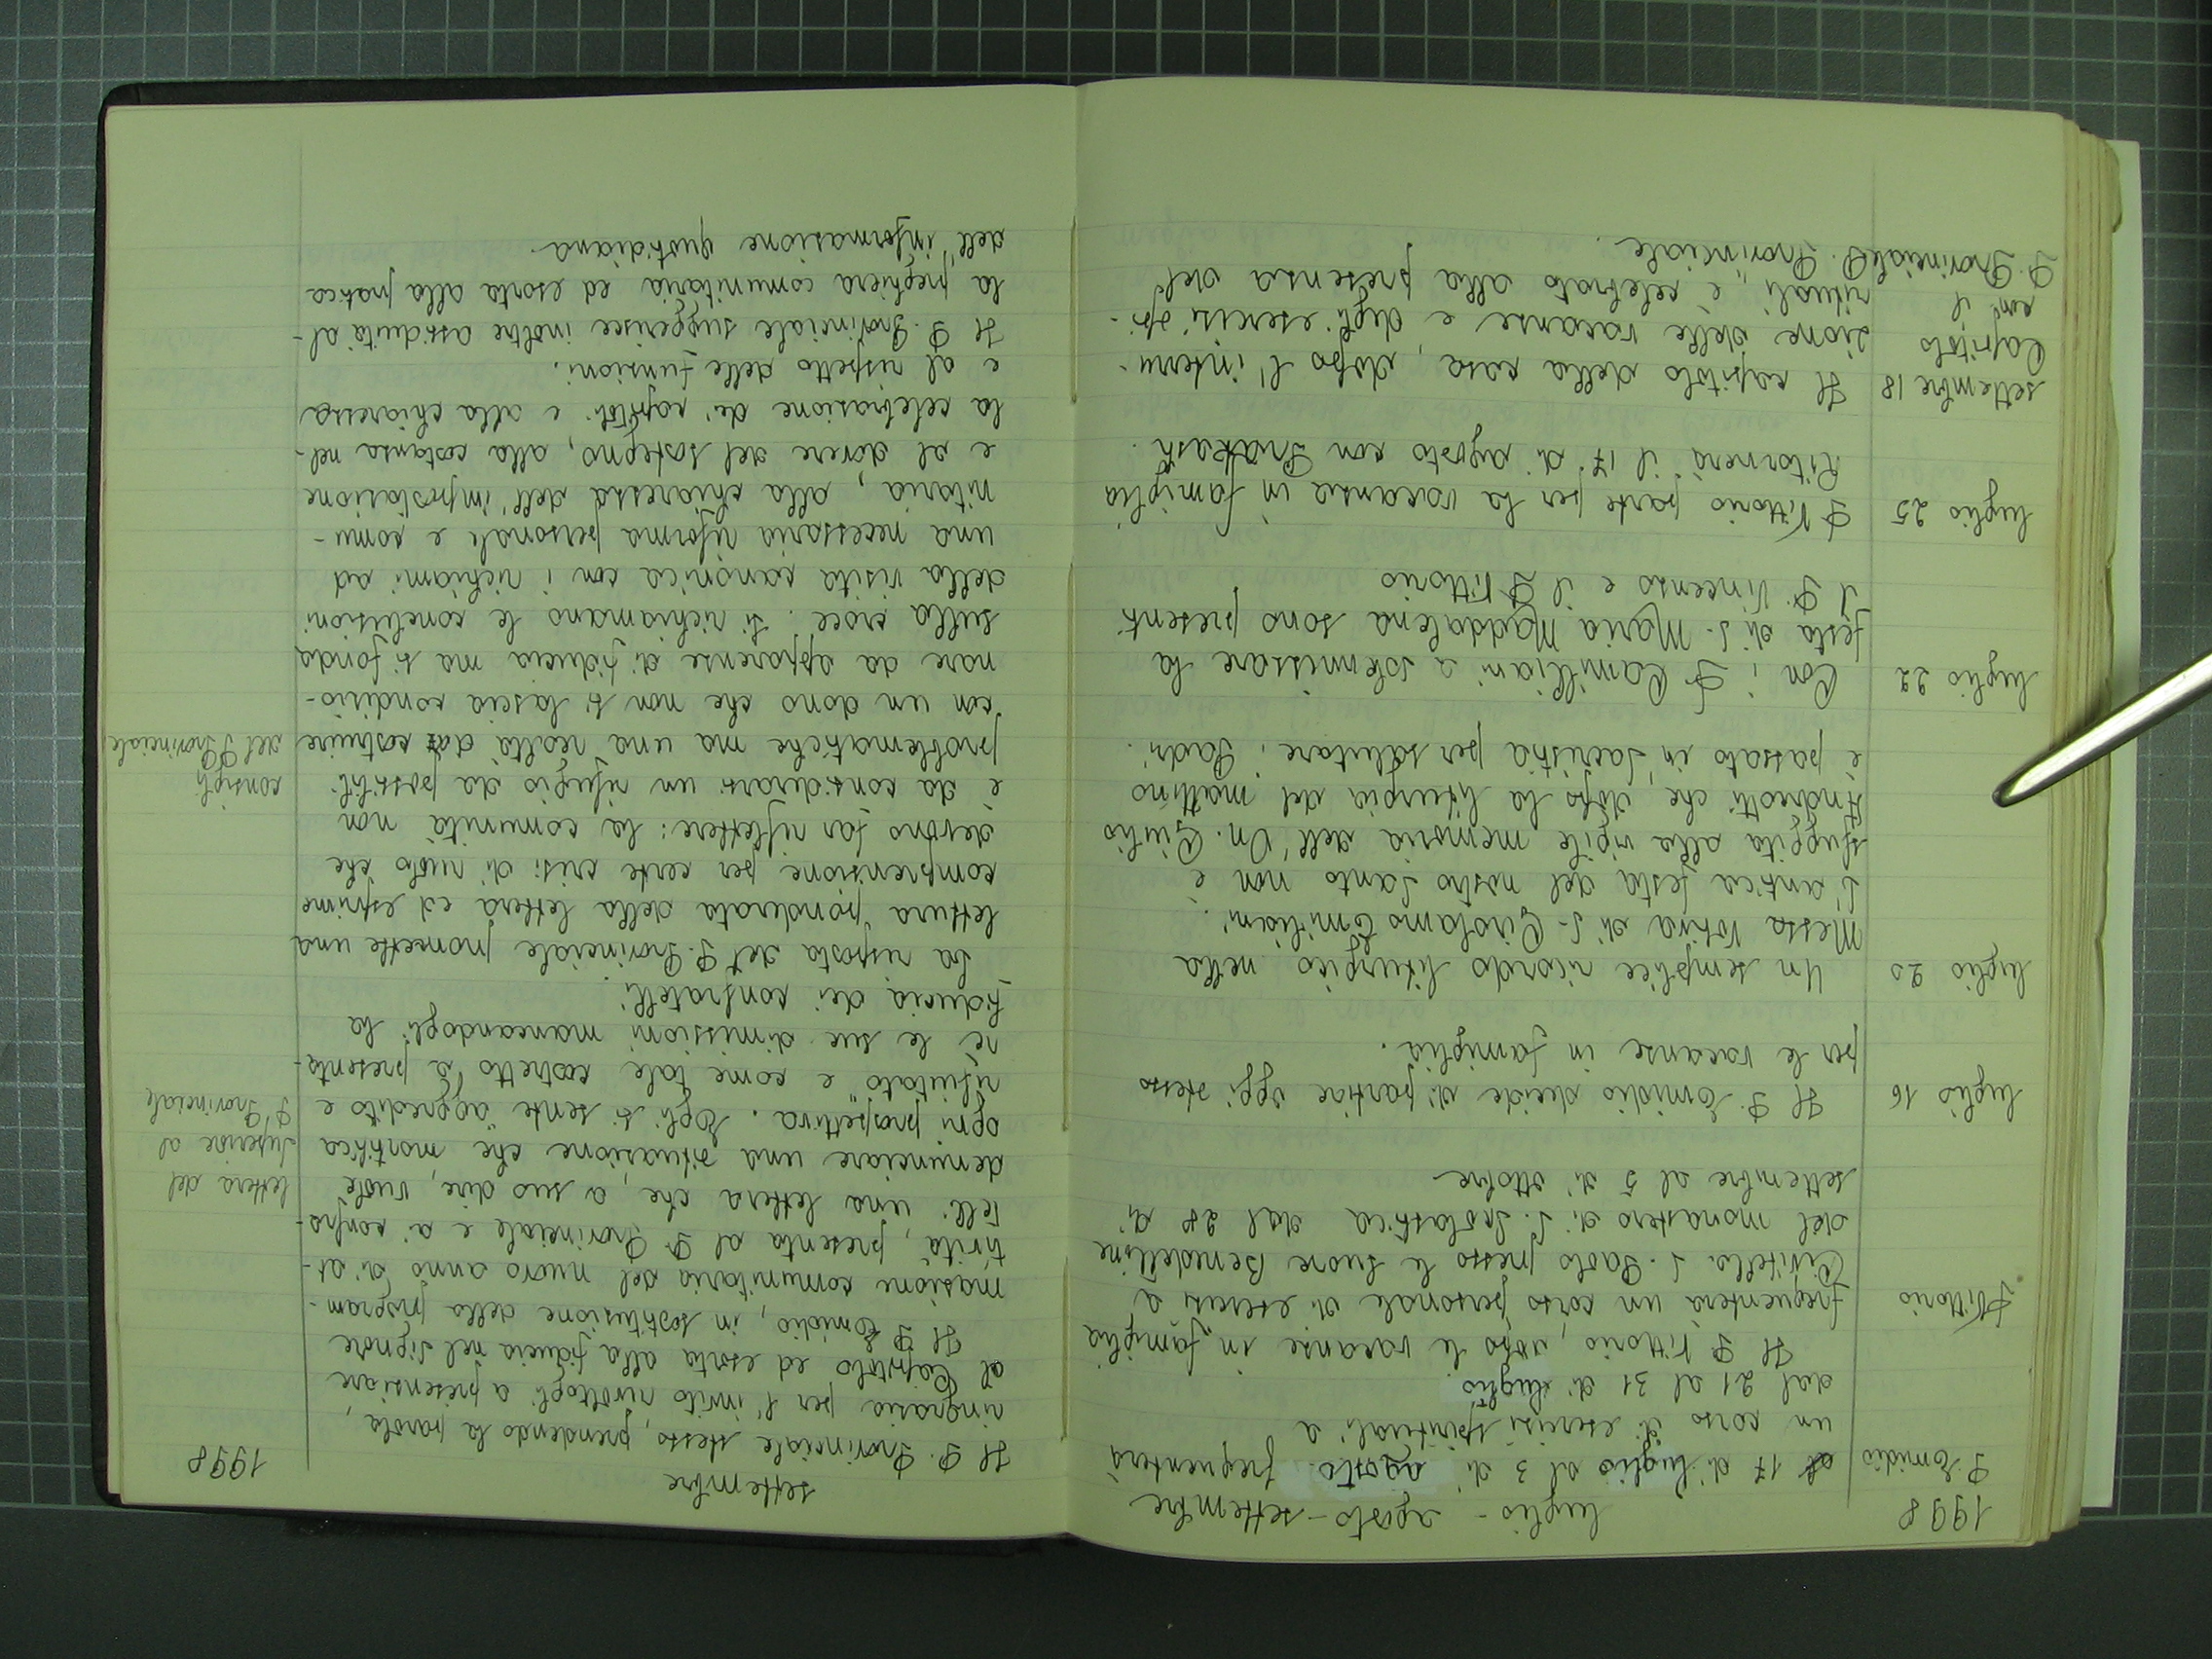 1998
luglio - agosto - settembre
P. Emidio
17 di luglio al 3 di agosto. frequenterà
un corso di esercizi spirituali a
dal 21 al 31 di luglio.
P Vittorio
Il P Vittorio, dopo le vacanze in famiglia
frequenterà un corso personale di esercizi a
Civitella S. Paolo presso le suore Benedettine
del monastero di S. Scolastica dal 28 di
settembre al 5 di ottobre
luglio 16
Il P. Emidio decide di partire oggi stesso
per le vacanze in famiglia.
luglio 20
Un semplice ricordo liturgico nella
Messa Votiva di S. Girolamo Emiliani.
L'antica festa del nostro Santo non è
sfuggita alla vigile memoria dell'On. Giulio
Andreotti che, dopo la liturgia del mattino
è passato in sacristia per salutare i Padri.
luglio 22
Con i P Camilliani a solennizzare la
festa di S. Maria Maddalena sono presenti
il P. Vincenzo e il P Vittorio
luglio 25
P Vittorio parte per la vacanza in famiglia
Ritornerà il 17 di agosto con Prakash.
settembre 18
Capitolo
con il
P. Provinciale
Il capitolo della casa, dopo l'interru-
zione delle vacanze e degli esercizi spi-
rituali, è celebrato alla presenza del
P. Provinciale.
settembre
1998
Il P. Provinciale stesso, prendendo la parola,
ringrazia per l'invito rivoltogli a presenziare
al Capitolo ed esorta alla fiducia nel Signore
Il P Emidio, in sostituzione della program-
mazione comunitaria del nuovo anno di at-
tività, presenta al P Provinciale e ai confra-
telli una lettera che, a suo dire, vuole
denunciare una situazione che mortifica
ogni prospettiva. Egli si sente aggredito e
rifiutato e come tale costretto a presenta-
re le sue dimissioni mancandogli la
fiducia dei confratelli.
lettera del
Superiore al
P Provinciale
La risposta del P. Provinciale promette una
lettura ponderata della lettera ed esprime
comprensione per certe crisi di ruolo che
devono far riflettere: la comunità non
è da considerarsi un rifugio da possibili
problematiche ma una realtà da costruire
con un dono che non si lascia condizio-
nare da apparenze di fiducia ma si fonda
sulla croce. Si richiamano le conclusioni
della visita canonica con i richiami ad
una necessaria riforma personale e comu-
nitaria, alla chiarezza dell'impostazione
e al dovere del sostegno, alla costanza nel-
la celebrazione dei capitoli e alla chiarezza
e al rispetto delle funzioni.
consigli
del P Provinciale
Il P. Provinciale suggerisce inoltre assiduità al-
la preghiera comunitaria ed esorta alla pratica
dell'informazione quotidiana.